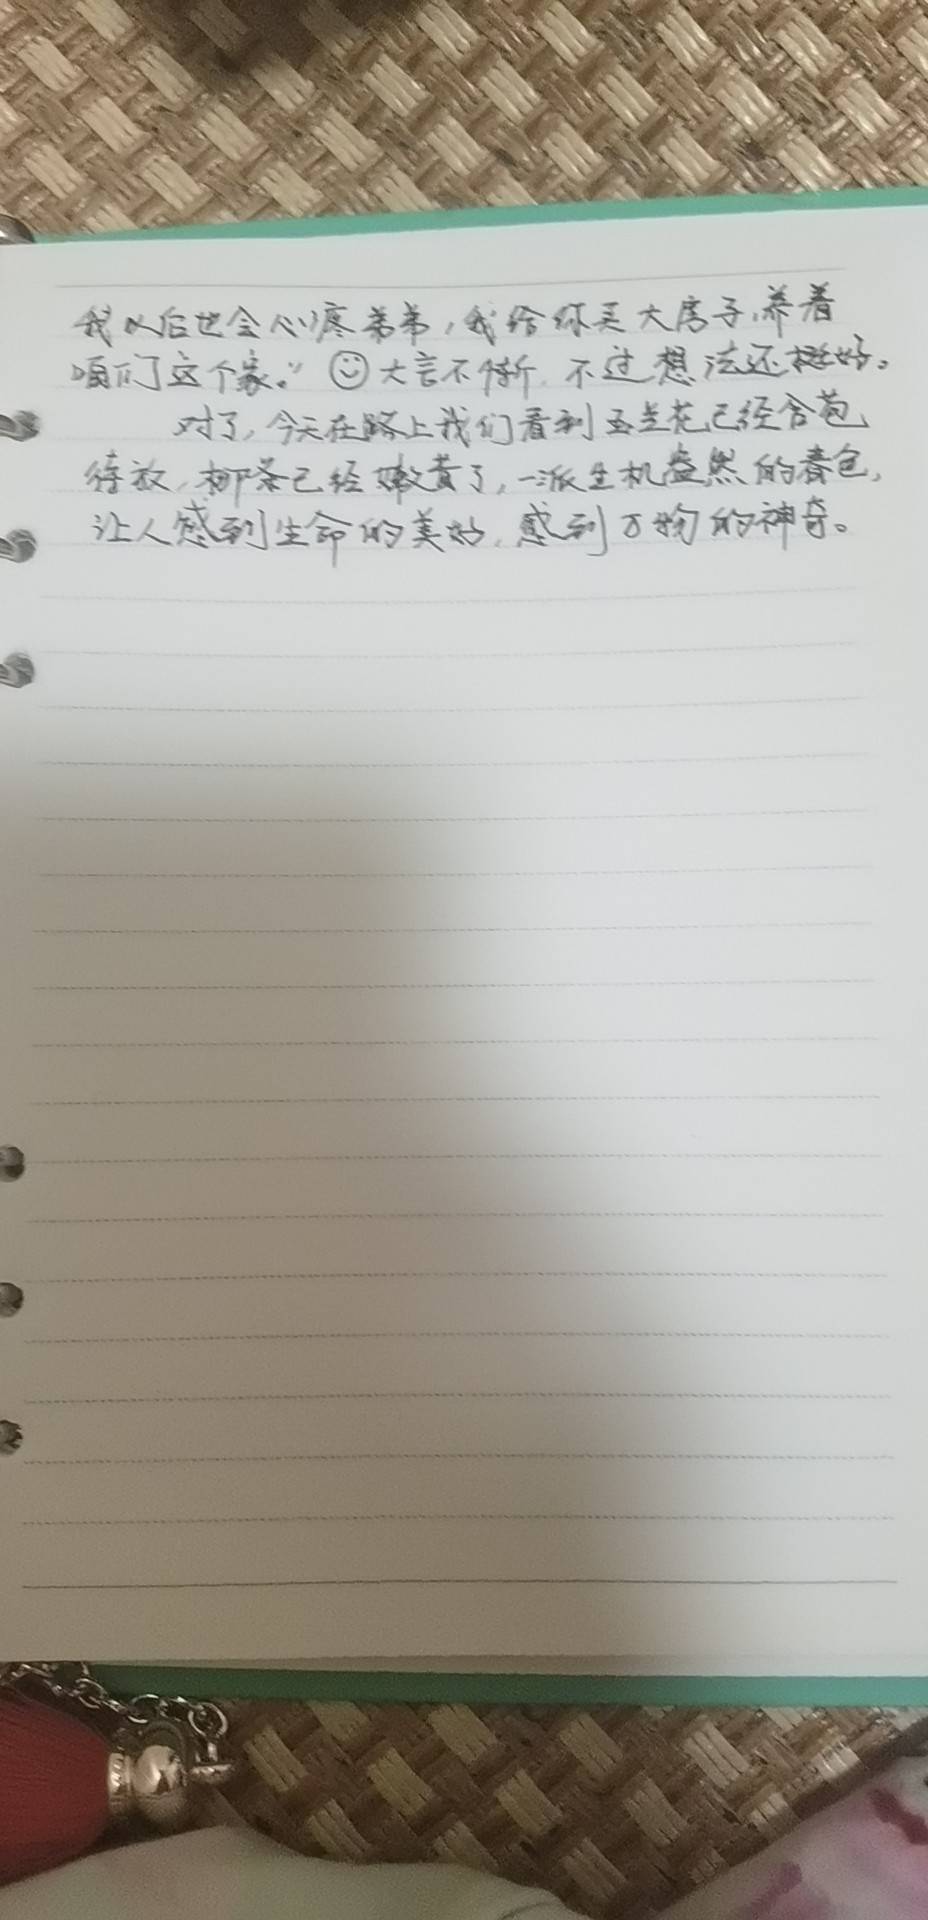 我以后也会心疼弟弟，我给你买大房子，养着
咱们这个家。”☺大言不惭，不过想法还挺好。
对了，今天在路上我们看到玉兰花已经含苞
待放，柳条已经嫩黄了，一派生机盎然的春色，
让人感到生命的美好，感到万物的神奇。